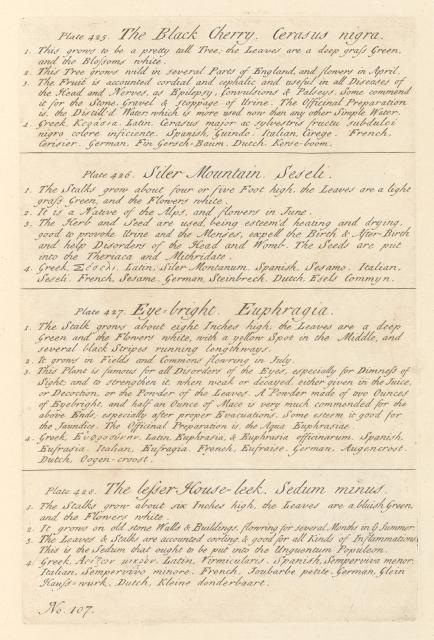 Plate 425. The Black Cherry. Cerasus nigra.
1. This grows to be a pretty tall Tree; the Leaves are a deep graſs Green,
and the Bloſsoms white.
2. This Tree grows wild in several Parts of England, and flowers in April.
3. The Fruit is accounted cordial and cephalic and useful in all Diseases of
the Head and Nerves, as Epilepsy, Convulsions & Palseys. Some commend
it for the Stone, Gravel & stoppage of Urine. The Officinal Preparation
is, the Distill'd Water which is more used now than any other Simple Water.
4. Greek, Latin, Cerasus major ac sylvestris fructu subdulci
nigro colore inficiente. Spanish, Guindo. Italian, Cirege. French,
Cerisier. German, Fin Gersch-Baum. Dutch, Kerse-boom.
Plate 426. Siler Mountain. Seseli.
1. The Stalks grow about four or five Foot high, the Leaves are a light
graſs Green, and the Flowers white.
2. It is a Native of the Alps, and flowers in June.
3. The Herb and Seed are used, being esteem'd heating and drying,
good to provoke Urine and the Menses, expell the Birth & After-Birth
and help Disorders of the Head and Womb. The Seeds are put
into the Theriaca and Mithridate.
4. Greek, Latin, Siler Montanum. Spanish, Sesamo. Italian,
Seseli. French, Sesame. German, Steinbrech. Dutch, Esels Commyn.
Plate 427. Eye-bright. Euphragia.
1. The Stalk grows about eight Inches high, the Leaves are a deep
Green and the Flowers white, with a yellow Spot in the Middle, and
several black Stripes running longthways.
2. It grows in Fields and Commons flowring in July.
3. This Plant is famous for all Disorders of the Eyes, especially for Dimneſs of
Sight; and to strengthen it, when weak or decayed, either given in the Juice,
or Decoction, or the Powder of the Leaves. A Powder made of two Ounces
of Eyebright, and half an Ounce of Mace is very much commended for the
above Ends, especially after proper Evacuations. Some esteem it good for
the Jaundice. The Officinal Preparation is, the Aqua Euphrasiæ.
4. Greek, Latin, Euphrasia, & Euphrasia officinarum. Spanish,
Eufrasia. Italian, Eufragia. French, Eufraise. German, Augencrost.
Dutch, Oogen-croost.
Plate 428. The leſser House-leek. Sedum minus.
1. The Stalks grow about six Inches high, the Leaves are a bluish Green,
and the Flowers white.
2. It grows on old stone Walls & Buildings, flowring for several Months in Summer.
3. The Leaves & Stalks are accounted cooling, & good for all Kinds of Inflammations.
This is the Sedum that ought to be put into the Unguentum Populeon.
4. Greek, Latin, Virmicularis. Spanish, Semperviva menor.
Italian, Sempervivo minore. French, Joubarbe petite. German, Glein
Hauſs-wurk. Dutch, Kleine donderbaart.
No. 107.